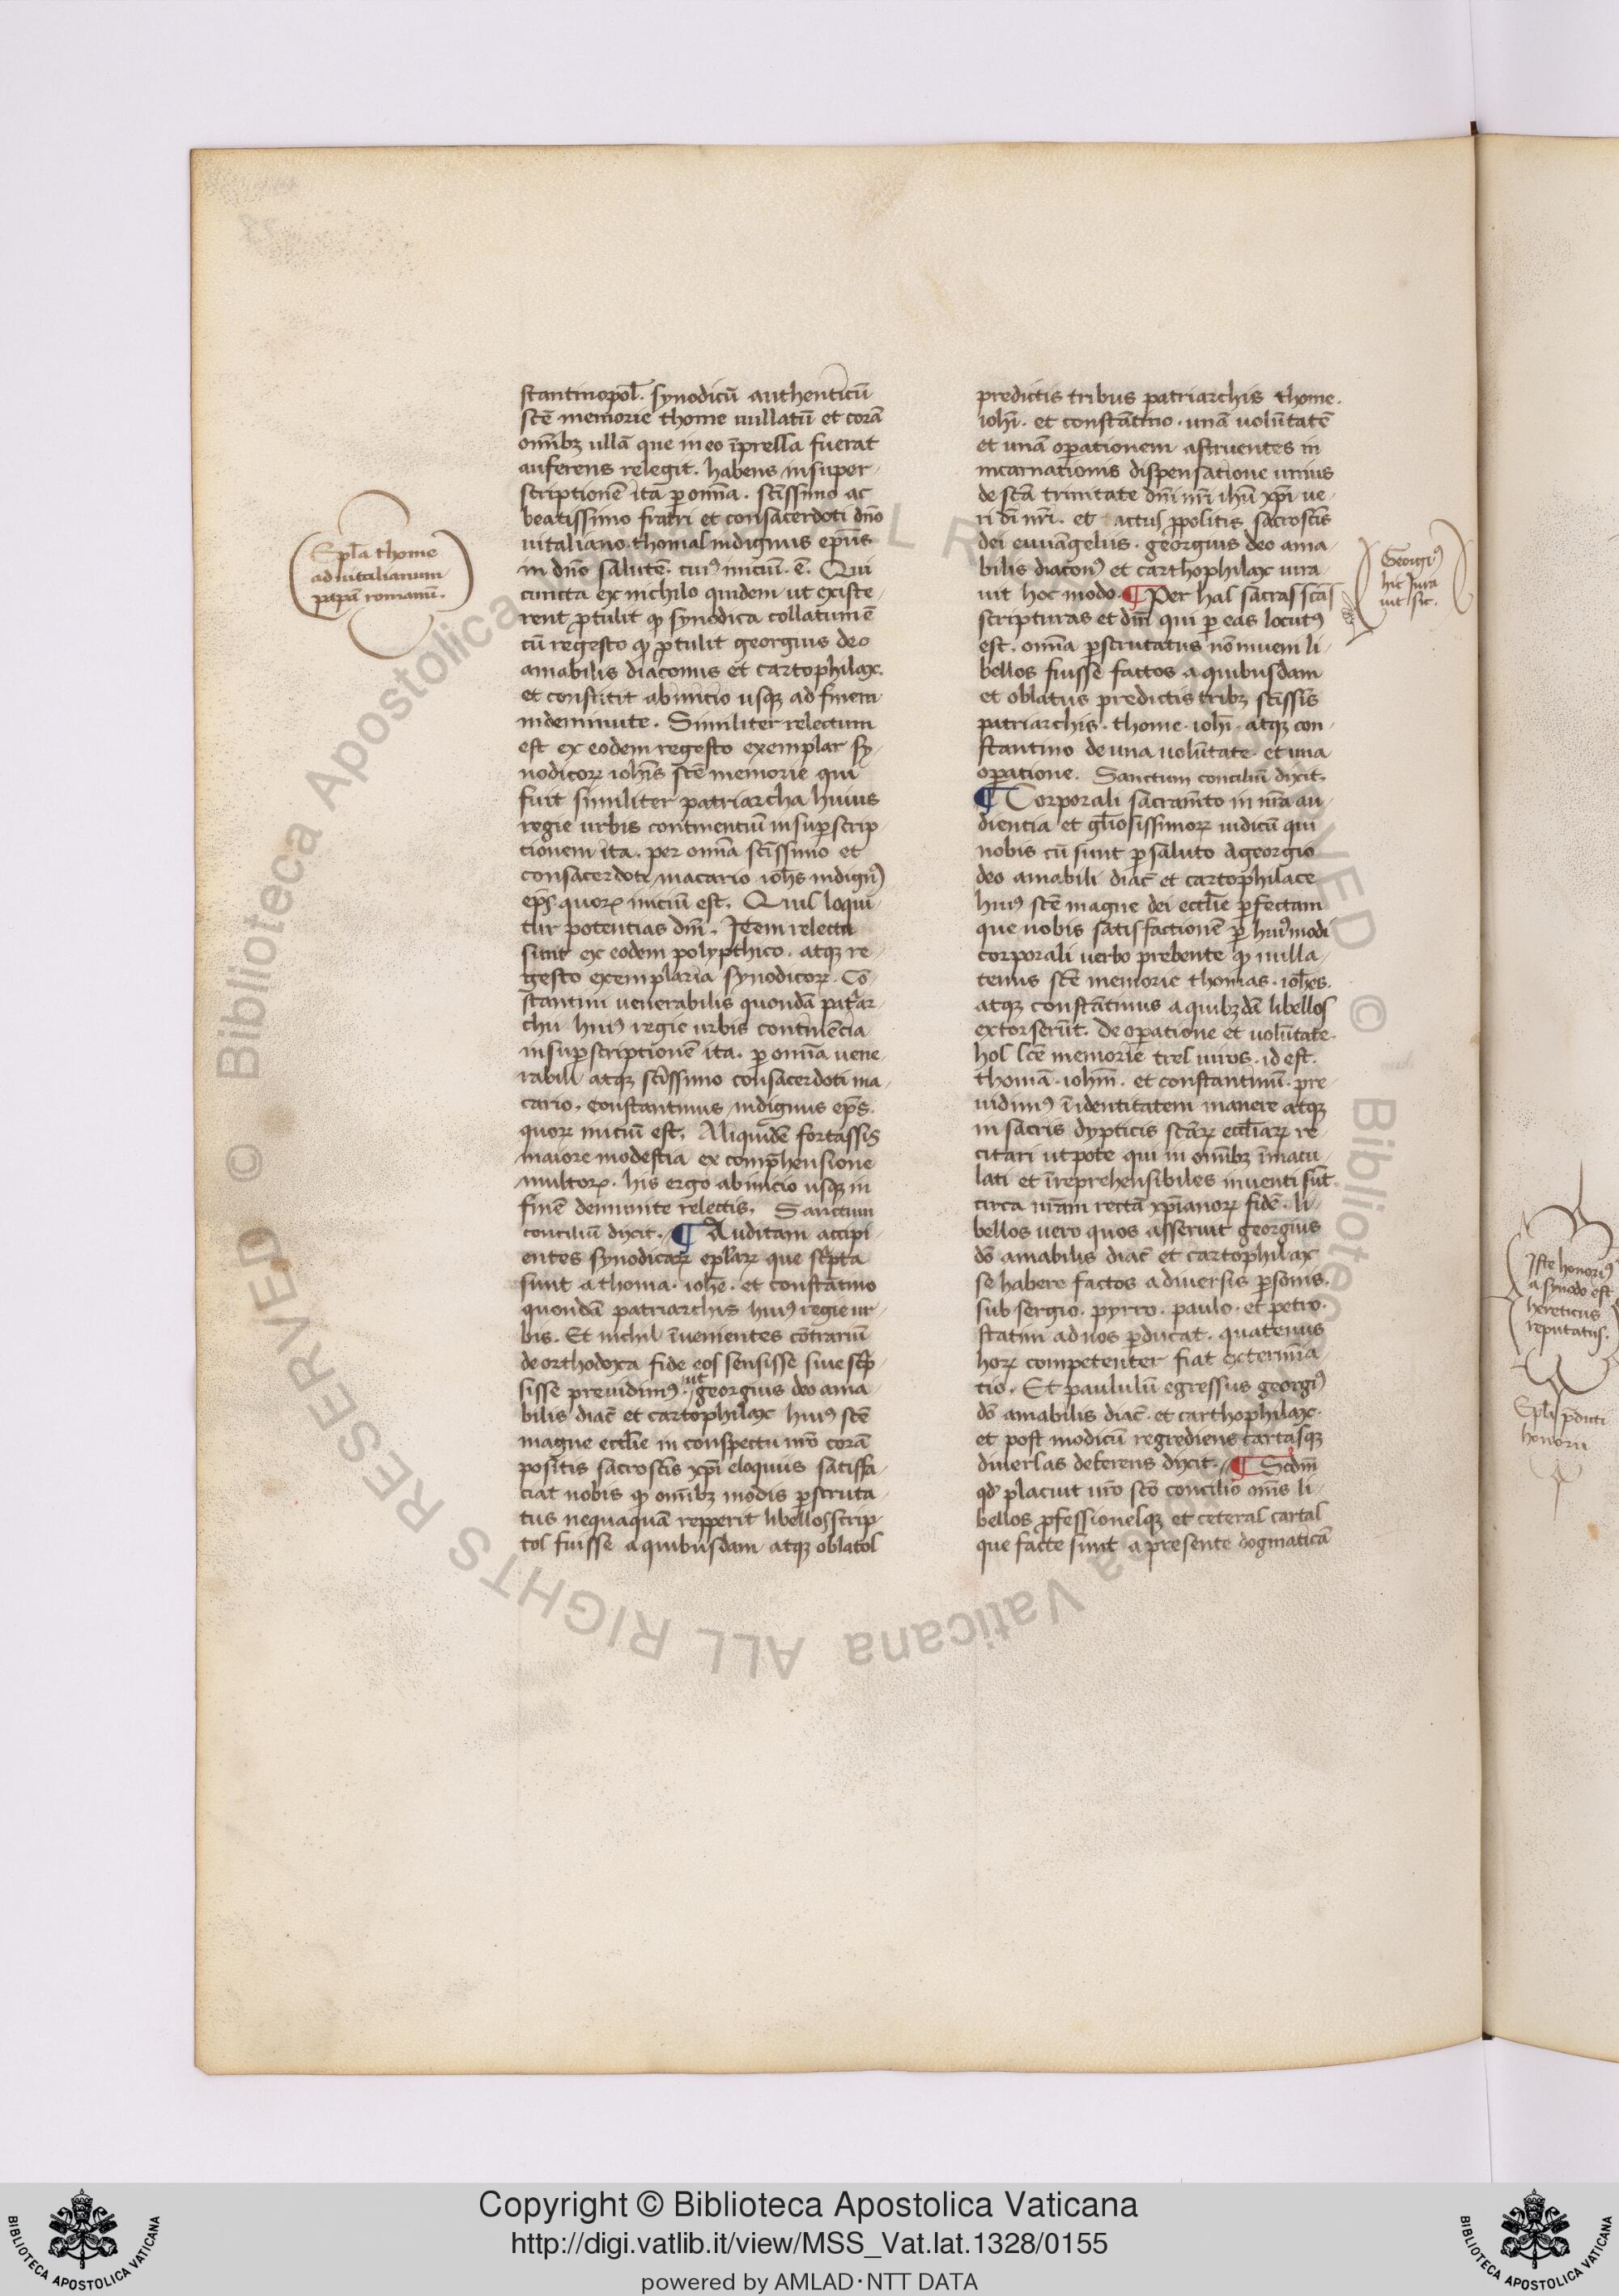 stantinopol̄. synodicū authenticū
sctē memorie thome nullatū et corā
omībꝫ ullā que in eo īpressa fuerat
auferens relegit. habens insuper
scriptionē ita ꝑ omīa. sctīssimo ac
beatissimo fratri et consacerdoti dn̄o
uitaliano. thomas indignus ep̄us
in dn̄o salutē. cuiꝰ iniciū. ē. Qui
cuncta ex nichilo quidem ut existe
rent ꝓtulit ꝙ synodica collatum ē
cū regesto ꝙ ꝓtulit georgius deo
amabilis diaconus et cartophilax.
et constitit ab inicio usqꝫ ad finem
indeminute. Similiter relectum
est ex eodem regesto exemplar sy
nodicoꝝ ioh̄is sctē memorie qui
fuit similiter patriarcha huius
regie urbis continentiū insuꝑscrip
tionem ita. per omīa sctīssimo et
consacerdoti macario ioh̄s indignꝰ
ep̄s quoꝝ iniciū est. Quis loqui
tur potentias dn̄i. Item relecta
sunt ex eodem polypthico. atqꝫ re
gesto exemplaria synodicoꝝ. Cō
stantini uenerabilis quondā pat̄ar
chi huiꝰ regie urbis continēcia
insuꝑscriptionē ita. ꝑ omīa uene
rabili atqꝫ sctīssimo consacerdoti ma
cario. Constantinus indignus ep̄s.
quoꝝ iniciū est. Aliquidē fortassis
maiore modestia ex comp̄hensione
multoꝝ. his ergo ab inicio usqꝫ in
finē deminute relectis. Sanctum
conciliū dixit. ¶ Auditam accipi
entes synodicaꝝ ep̄laꝝ que sc̄pta
sunt a thoma. ioh̄e. et constātino
quondā patriarchis huiꝰ regie ur
bis. Et nichil īuenientes cōtrariū
de orthodoxa fide eos sensisse siue sc̄p
sisse preuidimꝰ ut georgius deo ama
bilis diac̄ et cartophilax huiꝰ sctē
magne eccl̄ie in conspectu nr̄o corā
positis sacrosctīs xp̄i eloquiis satisfa
ciat nobis ꝙ omībꝫ modis ꝑscruta
tus nequaquā repperit libellos scrip
tos fuisse a quibusdam atqꝫ oblatos
predictis tribus patriarchis thome.
ioh̄i. et constātino. unā uolūtatē
et unā oꝑationem astruentes in
incarnationis dispensatione unius
de sctā trinitate dn̄i nr̄i ihū xp̄i ue
ri dī nr̄i. et tactus ꝓpolitis sacrosctīs
dei euuāgeliis. georgius deo ama
bilis diaconꝰ et carthophilax iura
uit hoc modo. ¶ Per has sacras sctās
scripturas et dīn̄ qui ꝑ eas locutꝰ
est. omīa ꝑscrutatus nō inueni li
bellos fuisse factos a quibusdam
et oblatus predictis tribꝫ sctīssīs
patriarchis. thome. ioh̄i. atqꝫ con
stantino de una uolūtate. et una
oꝑatione. Sanctum conciliū dixit.
¶ Corporali sacramēto in nr̄a au
dientia et gl̄iosissimoꝝ iudicū qui
nobis cū sunt ꝑsaluto a georgio
deo amabili diac̄ et cartophilace
huiꝰ sctē magne dei eccl̄ie ꝑfectam
que nobis satisfactionē ꝑ huiꝰmodi
corporali uerbo prebente ꝙ nulla
tenus sctē memorie thomas. ioh̄es.
atqꝫ constātinus a quibꝫdā libellos
extorserūt. de oꝑatione et uolūtate.
hos sctē memorie tres uiros. id est.
thomā. ioh̄m̄. et constantinū. pre
uidimꝰ ī identitatem manere atqꝫ
in sacris dypticis sctāꝝ eccl̄iaꝝ re
citari utpote qui in omībꝫ īmacu
lati et īreprehensibiles inuenti sūt.
circa nr̄am rectā xp̄ianoꝝ fidē. li
bellos uero quos asseruit georgius
dō amabilis diac̄ et cartophilax
se habere factos a diuersis ꝑsonis.
sub sergio. pyrro. paulo. et petro.
statim ad nos ꝑducat. quatenus
hoꝝ competenter fiat extermīa
tio. Et paululū egressus georgiꝰ
dō amabilis diac̄. et carthophilax.
et post modicū regrediens cartasqꝫ
diuersas deferens dixit. ¶ Scd̄m
qd̄ placuit nr̄o sctō concilio om̄s li
bellos ꝓfessionesqꝫ et ceteras cartas
que facte sunt a presente dogmaticā
Epl̄a thome
ad uitalianum
papā romanū.
Georgiꝰ
hic iura
uit sic.
Iste honoriꝰ
a synodo est
hereticus
reputatus.
Epl̄a p̄dicti
honorii
Copyright © Biblioteca Apostolica Vaticana
http://digi.vatlib.it/view/MSS_Vat.lat.1328/0155
powered by AMLAD·NTT DATA
BIBLIOTECA APOSTOLICA VATICANA
BIBLIOTECA APOSTOLICA VATICANA
© Biblioteca Apostolica Vaticana ALL RIGHTS RESERVED